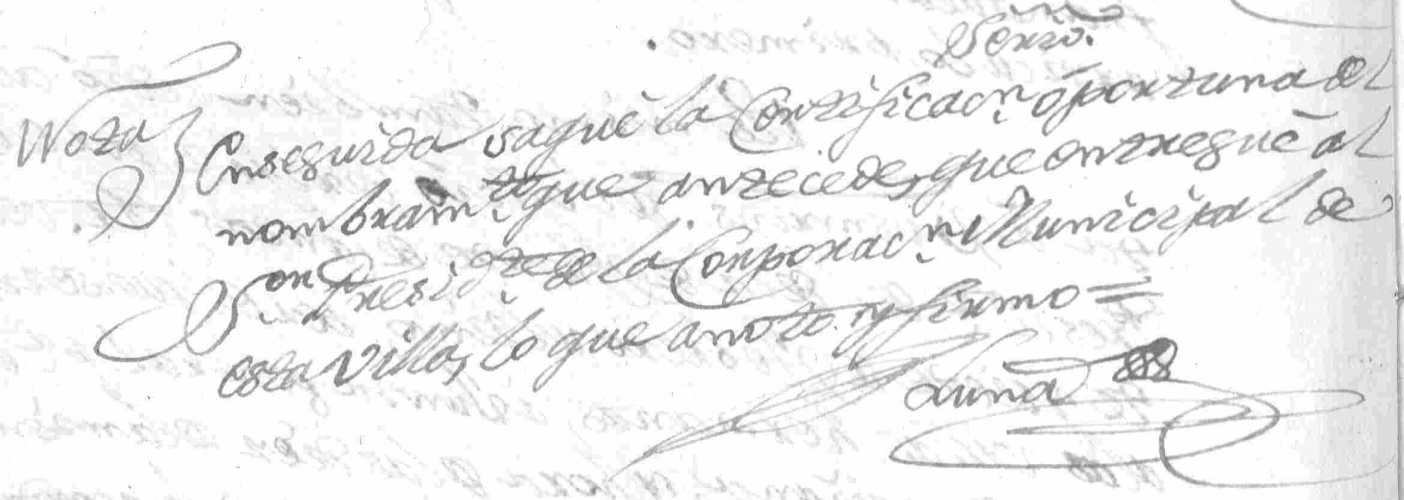 Serio.
Nota Enseguida saqué la Certificacn. oportuna del
nombramto. que antecede, que entregué al
Sor. Presidte. de la Corporacn. Municipal de
esta Villa, lo que anoto y firmo =
Luna